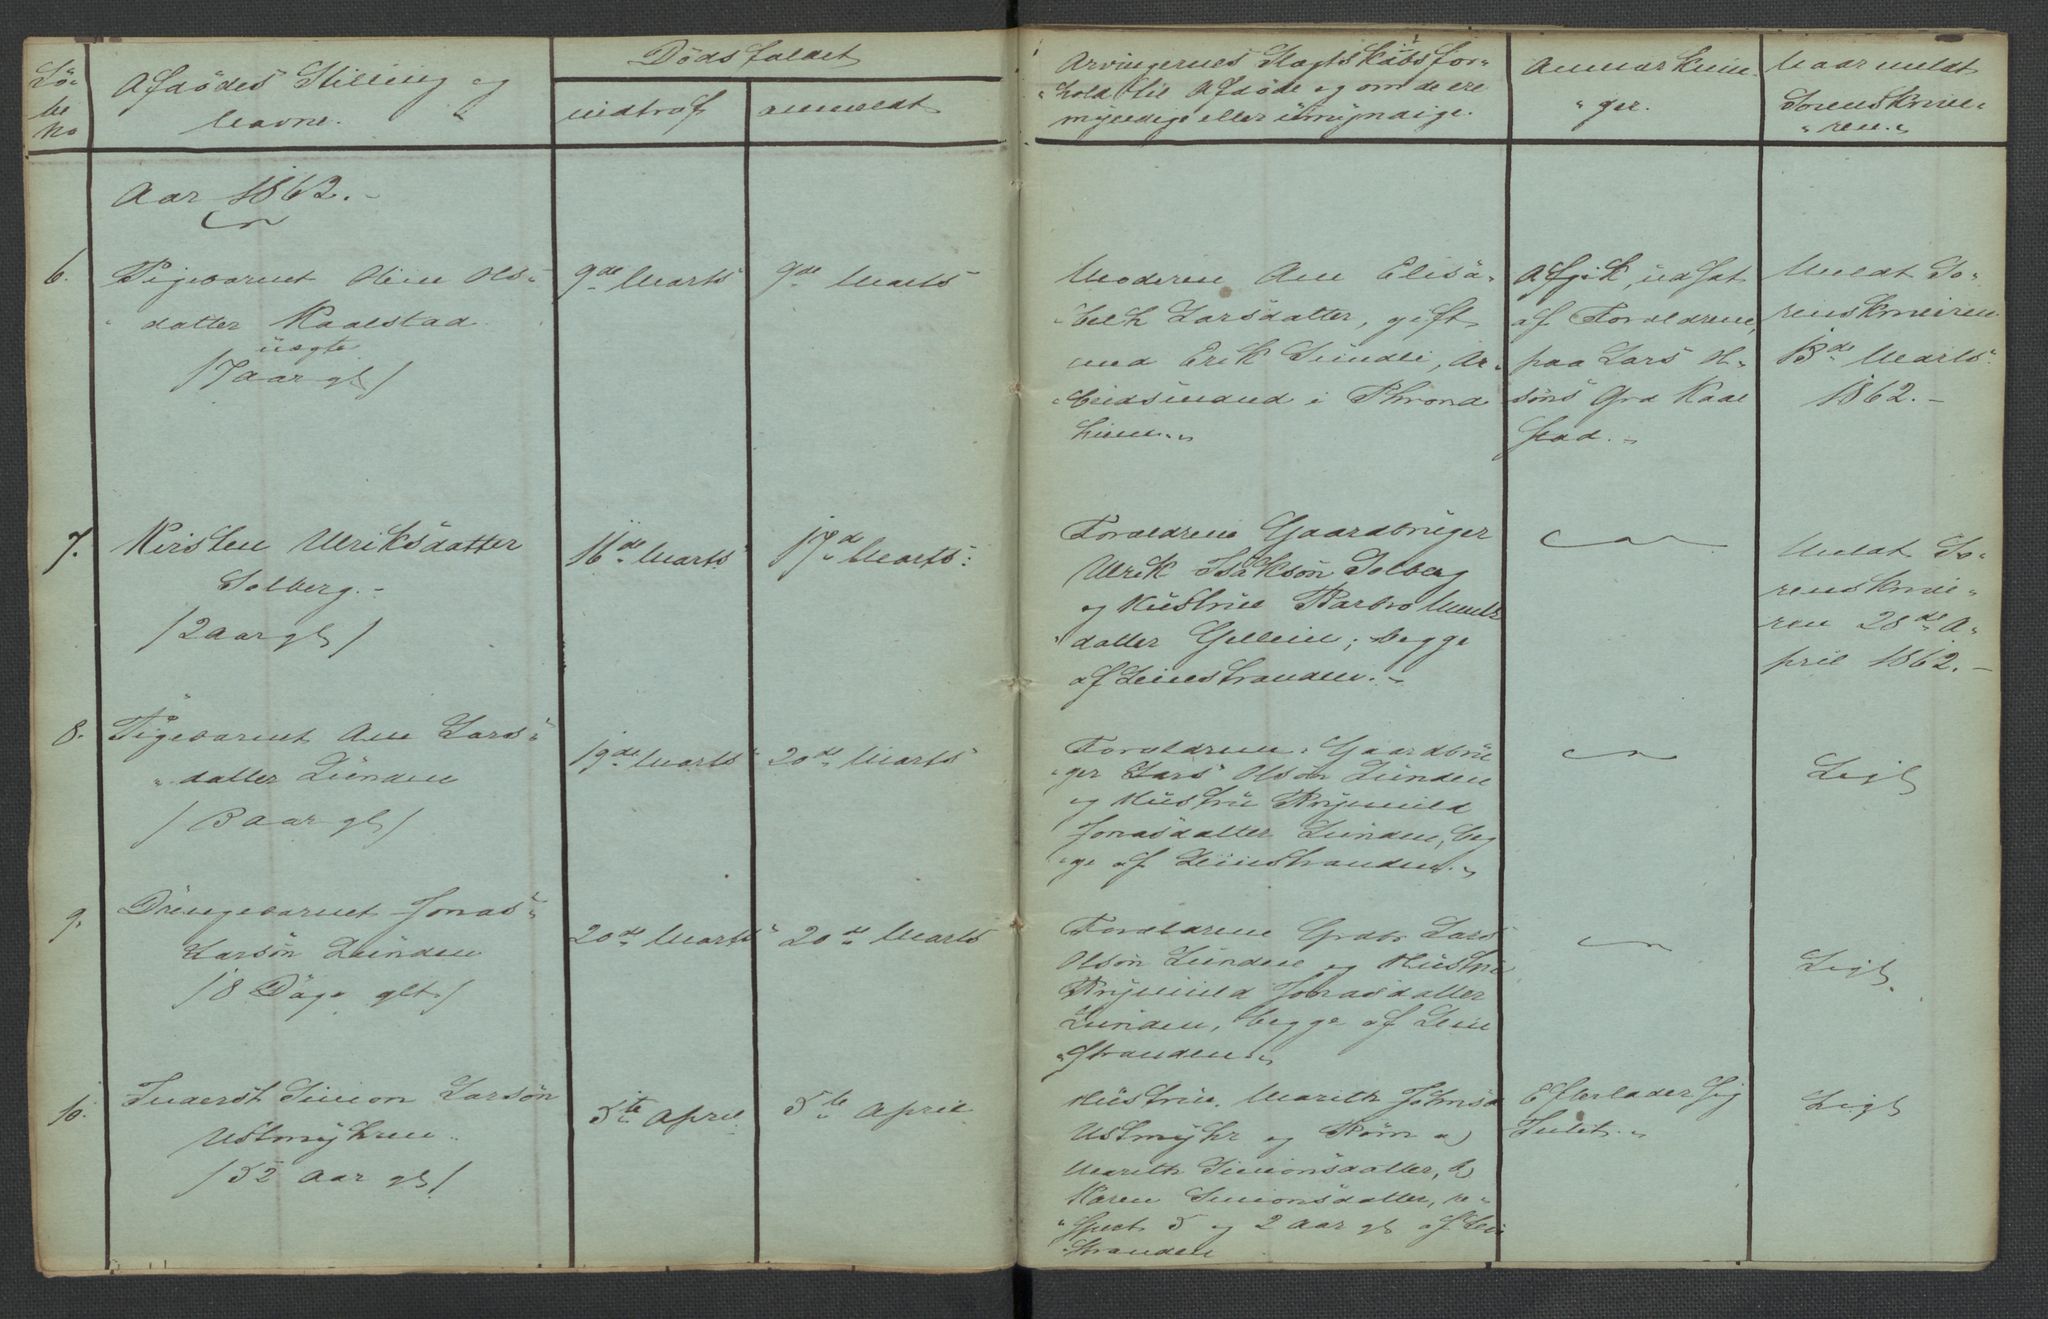 Lö-
be
No
Afdödes Stilling og
Navne.
Dödsfaldet
indtraf
anmeldt
Arvingernes Slægtskabsfor-
hold til Afdöde og om de ere
myndige eller umyndige.
Anmærknin-
ger.
Naar meldt
Sorenskrive-
ren.
Aar 1862.-
6.
Pigebarnet Oline Ols-
datter Kaalstad
uægte
/7 Aar gl/
9de Marts
9de Marts
Moderen Ane Elisa-
beth Larsdatter, gift
med Erik Sundli, Ar-
beidsmand i Thrond
hiem.
Afgik, udsat
af Forældrene,
paa Lars Ol-
söns Grd Kaal
stad.-
Meldt So-
renskriveren
13de Marts
1862.-
7.
Kirsten Ulriksdatter
Solberg.-
/2 Aar gl/
16de Marts
17d Marts
Forældrene Gaardbruger
Ulrik Isaksön Solberg
og Hustrue Barbro
datter; begge
af Leinstranden.-
Meldt So-
renskrive-
ren 28de A-
pril 1862.-
8.
Pigebarnet Ane Lars-
datter Lunden
/3 Aar gl/
19de Marts
20de Marts
Forældrene, Gaardbru-
ger Lars Olsön Lunden
og Hustru Brynhild
Jonasdatter Lunden, beg
ge af Leinstranden.
Ligt
9.
Drengebarnet Jonas
Larsön Lunden
/8 Dage glt/
20de Marts
20de Marts
Forældrene Grdbr Lars
Olsön Lunden og Hustru
Brynhild Jonasdatter
Lunden, begge af Lein
stranden.
Ligt.
10.
Inderst Simon Larsön
Ustmyhren
/52 Aar gl/
5te April
5te April
Hustrue, Marith Johnsd
Ustmyhr og Börn a)
Marith Simonsdatter, b)
Karen Simonsdatter, re-
spect 5 og 2 Aar gl af Lein
stranden
Efterlader sig
Intet.
Ligt